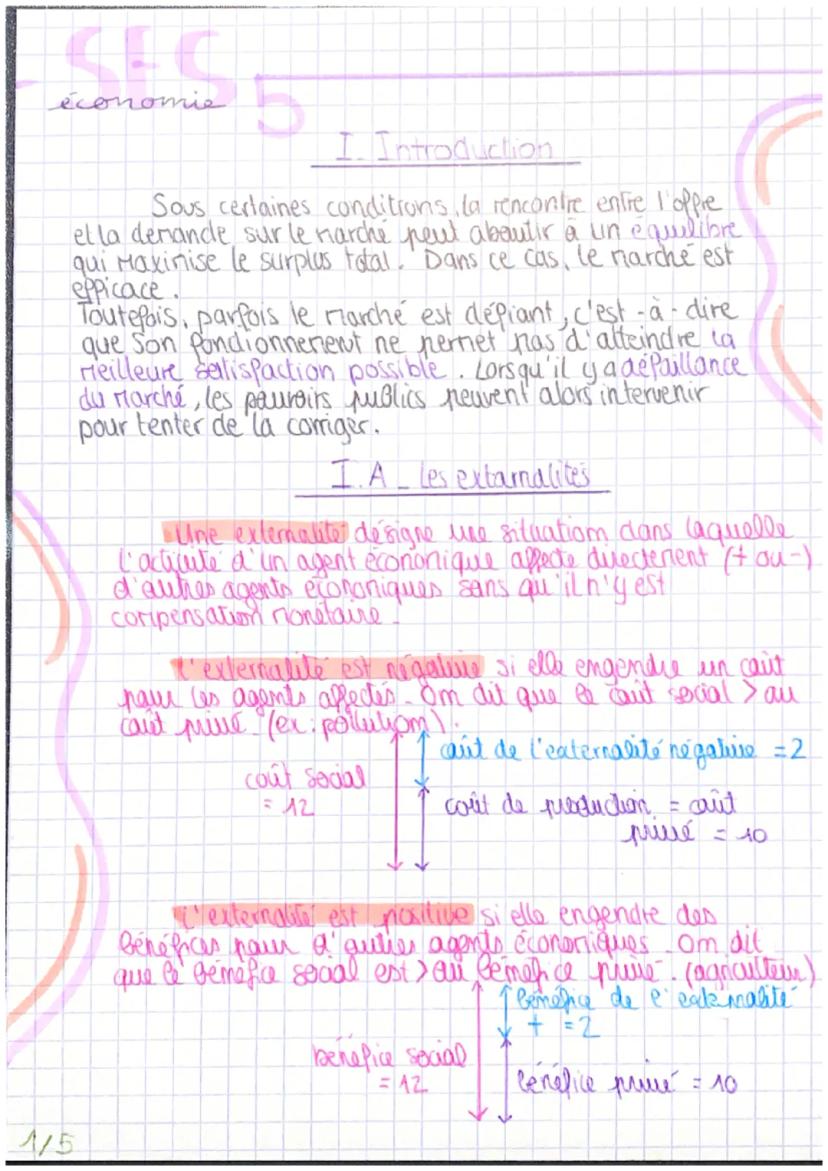 - SES 5
économie
I. Introduction
Sous certaines conditions, la rencontre entre l'offre
et la demande sur le marché peut aboutir à un équilibre
qui maximise le surplus total. Dans ce cas, le marché est
efficace.
Toutefois, parfois le marché est défiant, c'est-à-dire
que son fonctionnement ne permet pas d'atteindre la
meilleure satisfaction possible. Lorsqu'il y a défaillance
du marché, les pouvoirs publics peuvent alors intervenir
pour tenter de la corriger.
I.A _ Les externalités
Une externalité désigne une situation dans laquelle
l'activité d'un agent économique affecte directement (+ ou -)
d'autres agents économiques sans qu'il n'y est
compensation monétaire.
L'externalité est négative si elle engendre un coût
pour les agents affectés. On dit que le coût social > au
coût privé. (ex: pollution).
coût de l'externalité négative = 2
coût social
= 12
coût de production = coût
privé = 10
L'externalité est positive si elle engendre des
bénéfices pour d'autres agents économiques. On dit
que le bénéfice social est > au bénéfice privé. (agriculteur)
bénéfice de l'externalité
+ = 2
bénéfice social
= 12
bénéfice privé = 10
1/5